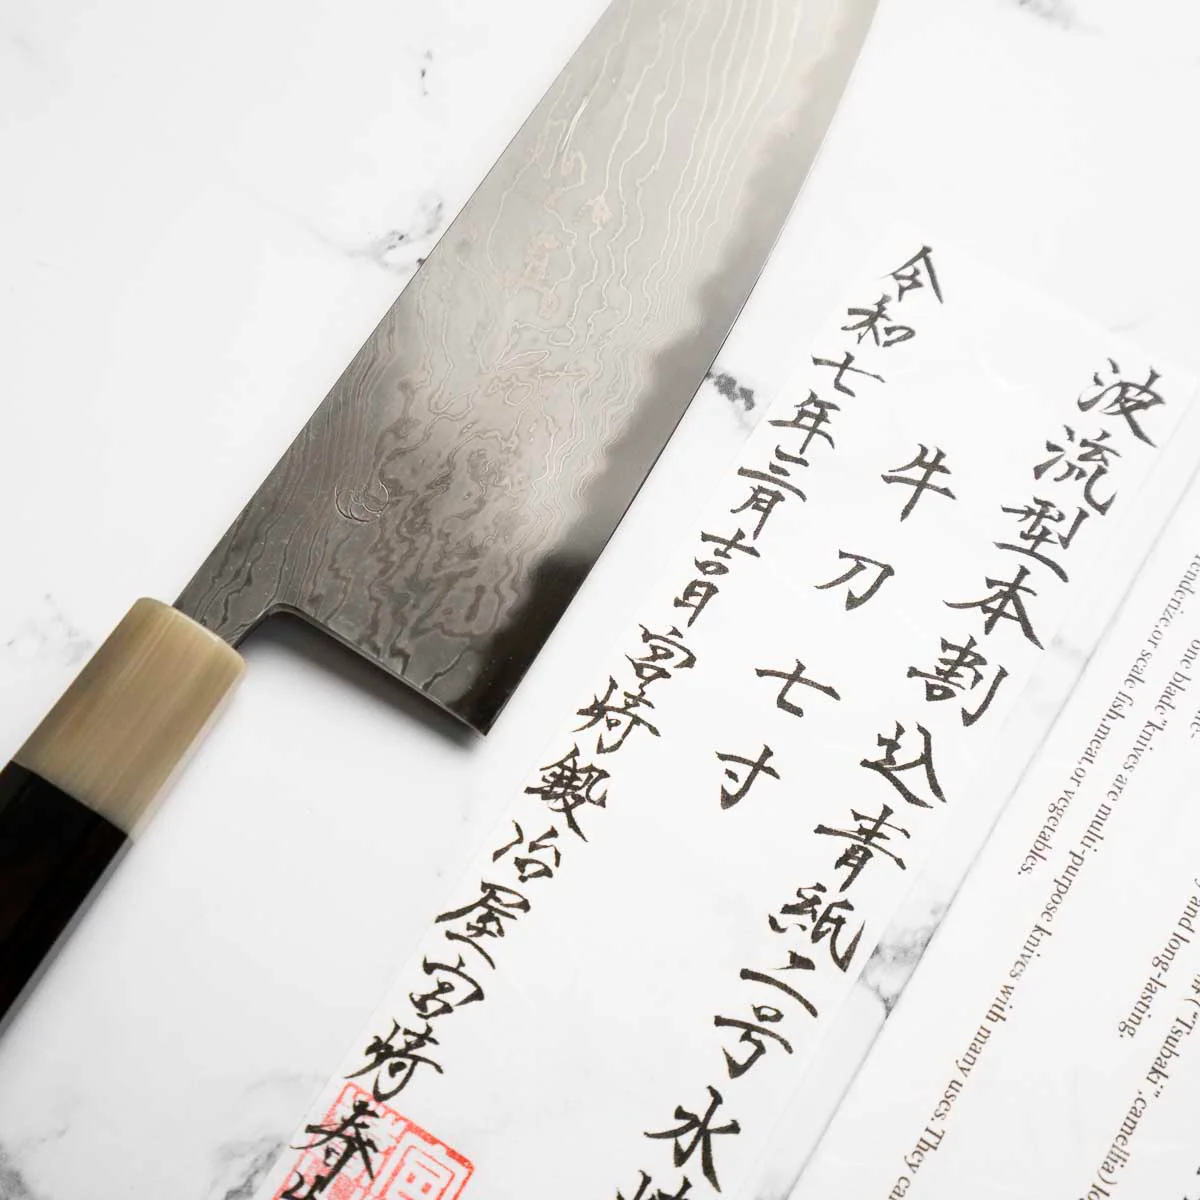 波流型本割込青紙二号水
牛刀 七寸
令和七年三月吉日 宮崎鍛冶屋 宮崎春
("Tsubaki",camellia)
and long-lasting.
one blade"knives are multi-purpose knives with many uses.They
or scale fish,meat,or vegetables.